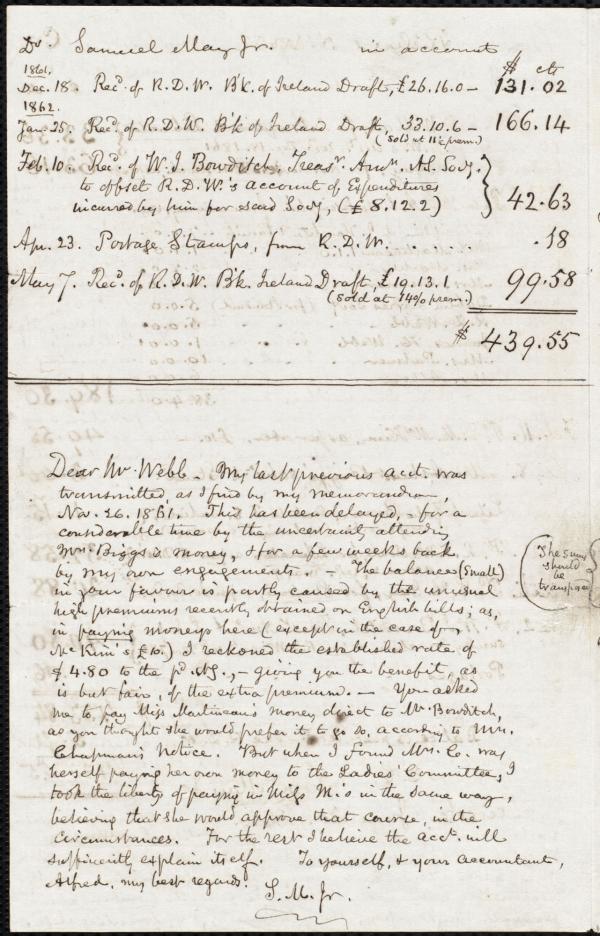 Dr. Samuel May Jr. in account
$ cts
1861.
Dec. 18. Recd. of R. D. W. Bk. of Ireland Draft, £26.16.0 – 131.02
1862.
Jan. 25. Recd. of R. D. W. Bk of Ireland Draft, 33.10.6 – 166.14
(sold at 11½ prem.)
Feb. 10. Recd. of W. I. Bowditch, Treasr. Amn. A.S. Socy.
to offset R. D. W.'s account of Expenditures
incurred by him for said Socy, (£8.12.2) 42.63
Apr. 23. Postage Stamps, from R. D. W. . . . . . .18
May 7. Recd. of R. D. W. Bk. Ireland Draft, £19.13.1 99.58
(sold at 14% prem.)
$ 439.55
Dear Mr. Webb – My last previous acct. was
transmitted, as I find by my memorandum,
Nov. 26. 1861. This has been delayed, – for a
considerable time by the uncertainty attending
Mrs. Biggs's money, & for a few weeks back
by my own engagements. – The balance (small)
in your favour is partly caused by the unusual
high premiums recently obtained on English bills; as,
in paying moneys here (except in the case of
McKim's £10.) I reckoned the established rate of
$4.80 to the pd. stg., – giving you the benefit, as
is but fair, of the extra premium. – You asked
me to pay Miss Martineau's money direct to Mr. Bowditch,
as you thought she would prefer it to go so, according to Mrs.
Chapman's notice. But when I found Mrs. C. was
herself paying her own money to the Ladies' Committee, I
took the liberty of paying in Miss M.'s in the same way,
believing that she would approve that course, in the
circumstances. For the rest I believe the acct. will
sufficiently explain itself. To yourself, & your accountant,
Alfred, my best regards.
S. M. Jr.
The sums
should
be